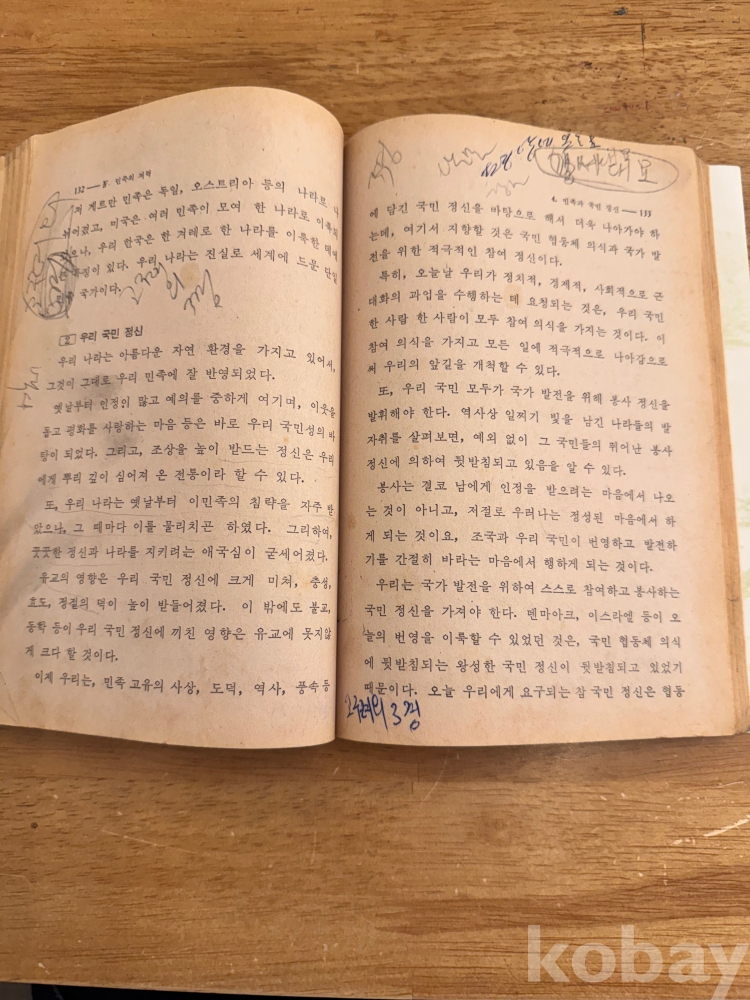 132 — Ⅳ. 민족의 저력
겨 게르만 민족은 독일, 오스트리아 등의 나라로 나
뉘어졌고, 미국은 여러 민족이 모여 한 나라로 이룩되
었으나, 우리 한국은 한 겨레로 한 나라를 이룩한 데에
특징이 있다. 우리 나라는 진실로 세계에 드문 단일
국가이다.
2 우리 국민 정신
우리 나라는 아름다운 자연 환경을 가지고 있어서,
그것이 그대로 우리 민족에 잘 반영되었다.
옛날부터 인정이 많고 예의를 중하게 여기며, 이웃을
돕고 평화를 사랑하는 마음 등은 바로 우리 국민성의 바
탕이 되었다. 그리고, 조상을 높이 받드는 정신은 우리
에게 뿌리 깊이 심어져 온 전통이라 할 수 있다.
또, 우리 나라는 옛날부터 이민족의 침략을 자주 받
았으나, 그 때마다 이를 물리치곤 하였다. 그리하여,
꿋꿋한 정신과 나라를 지키려는 애국심이 굳세어졌다.
유교의 영향은 우리 국민 정신에 크게 미쳐, 충성,
효도, 정절의 덕이 높이 받들어졌다. 이 밖에도 불교,
동학 등이 우리 국민 정신에 끼친 영향은 유교에 못지않
게 크다 할 것이다.
이제 우리는, 민족 고유의 사상, 도덕, 역사, 풍속 등
4. 민족과 국민 정신 — 133
에 담긴 국민 정신을 바탕으로 해서 더욱 나아가야 하
는데, 여기서 지향할 것은 국민 협동체 의식과 국가 발
전을 위한 적극적인 참여 정신이다.
특히, 오늘날 우리가 정치적, 경제적, 사회적으로 근
대화의 과업을 수행하는 데 요청되는 것은, 우리 국민
한 사람 한 사람이 모두 참여 의식을 가지는 것이다. 이
참여 의식을 가지고 모든 일에 적극적으로 나아감으로
써 우리의 앞길을 개척할 수 있다.
또, 우리 국민 모두가 국가 발전을 위해 봉사 정신을
발휘해야 한다. 역사상 일찌기 빛을 남긴 나라들의 발
자취를 살펴보면, 예외 없이 그 국민들의 뛰어난 봉사
정신에 의하여 뒷받침되고 있음을 알 수 있다.
봉사는 결코 남에게 인정을 받으려는 마음에서 나오
는 것이 아니고, 저절로 우러나는 정성된 마음에서 하
게 되는 것이요, 조국과 우리 국민이 번영하고 발전하
기를 간절히 바라는 마음에서 행하게 되는 것이다.
우리는 국가 발전을 위하여 스스로 참여하고 봉사하는
국민 정신을 가져야 한다. 덴마아크, 이스라엘 등이 오
늘의 번영을 이룩할 수 있었던 것은, 국민 협동체 의식
에 뒷받침되는 왕성한 국민 정신이 뒷받침되고 있었기
때문이다. 오늘 우리에게 요구되는 참 국민 정신은 협동
고려의 3경
kobay